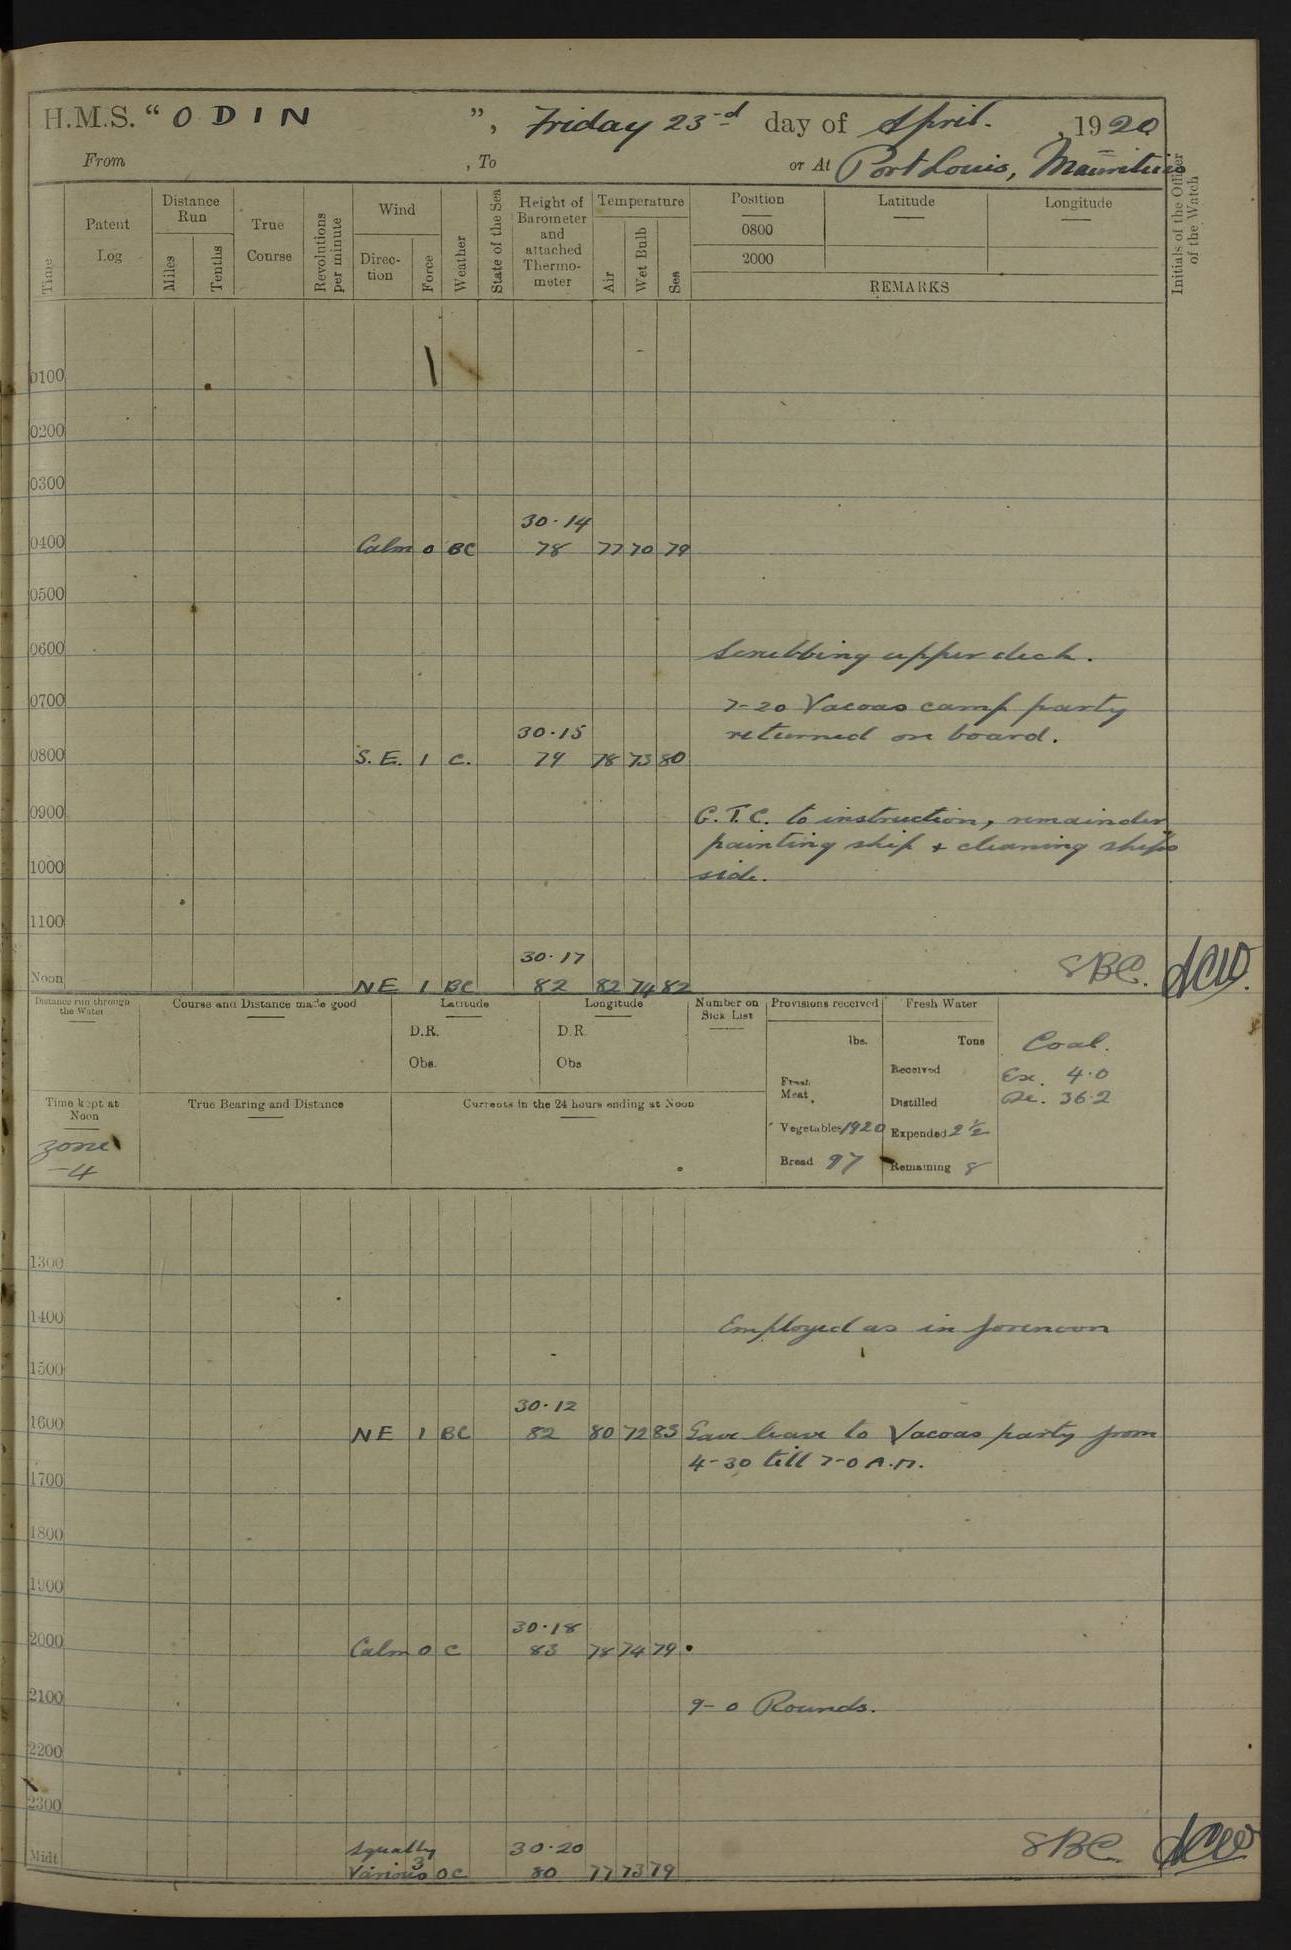 H.M.S. “ODIN”, Friday 23rd day of April. , 1920
From , To or At Port Louis, Mauritius
Time Patent Log Distance Run Miles Tenths True Course Revolutions per minute Wind Direction Force Weather State of the Sea Height of Barometer and attached Thermometer Temperature Air Wet Bulb Sea Position Latitude Longitude Initials of the Officer of the Watch
0800
2000
REMARKS
0100
0200
0300
30·14
0400 Calm 0 BC 78 77 70 79
0500
0600 Scrubbing upper deck.
0700 7-20 Vacoas camp party
30·15 returned on board.
0800 S.E. 1 C. 79 78 73 80
0900 G.T.C. to instruction, remainder
painting ship + cleaning ships
1000 side.
1100
30·17 SBC. ACW.
Noon NE 1 BC 82 82 74 82
Distance run through the Water Course and Distance made good Latitude Longitude Number on Sick List Provisions received Fresh Water
D.R. D.R. lbs. Tons Coal.
Obs. Obs Received Ex. 4·0
Time kept at Noon True Bearing and Distance Currents in the 24 hours ending at Noon Fresh Meat Distilled Re. 36·2
zone Vegetables 1920 Expended 2½
-4 Bread 97 Remaining 8
1300
1400 Employed as in forenoon
1500
30·12
1600 NE 1 BC 82 80 72 83 Gave leave to Vacoas party from
4-30 till 7-0 A.M.
1700
1800
1900
30·18
2000 Calm 0 C 83 78 74 79
2100 9-0 Rounds.
2200
2300
Squally 30·20 SBC. ACW
Midt Various 3 OC 80 77 73 79